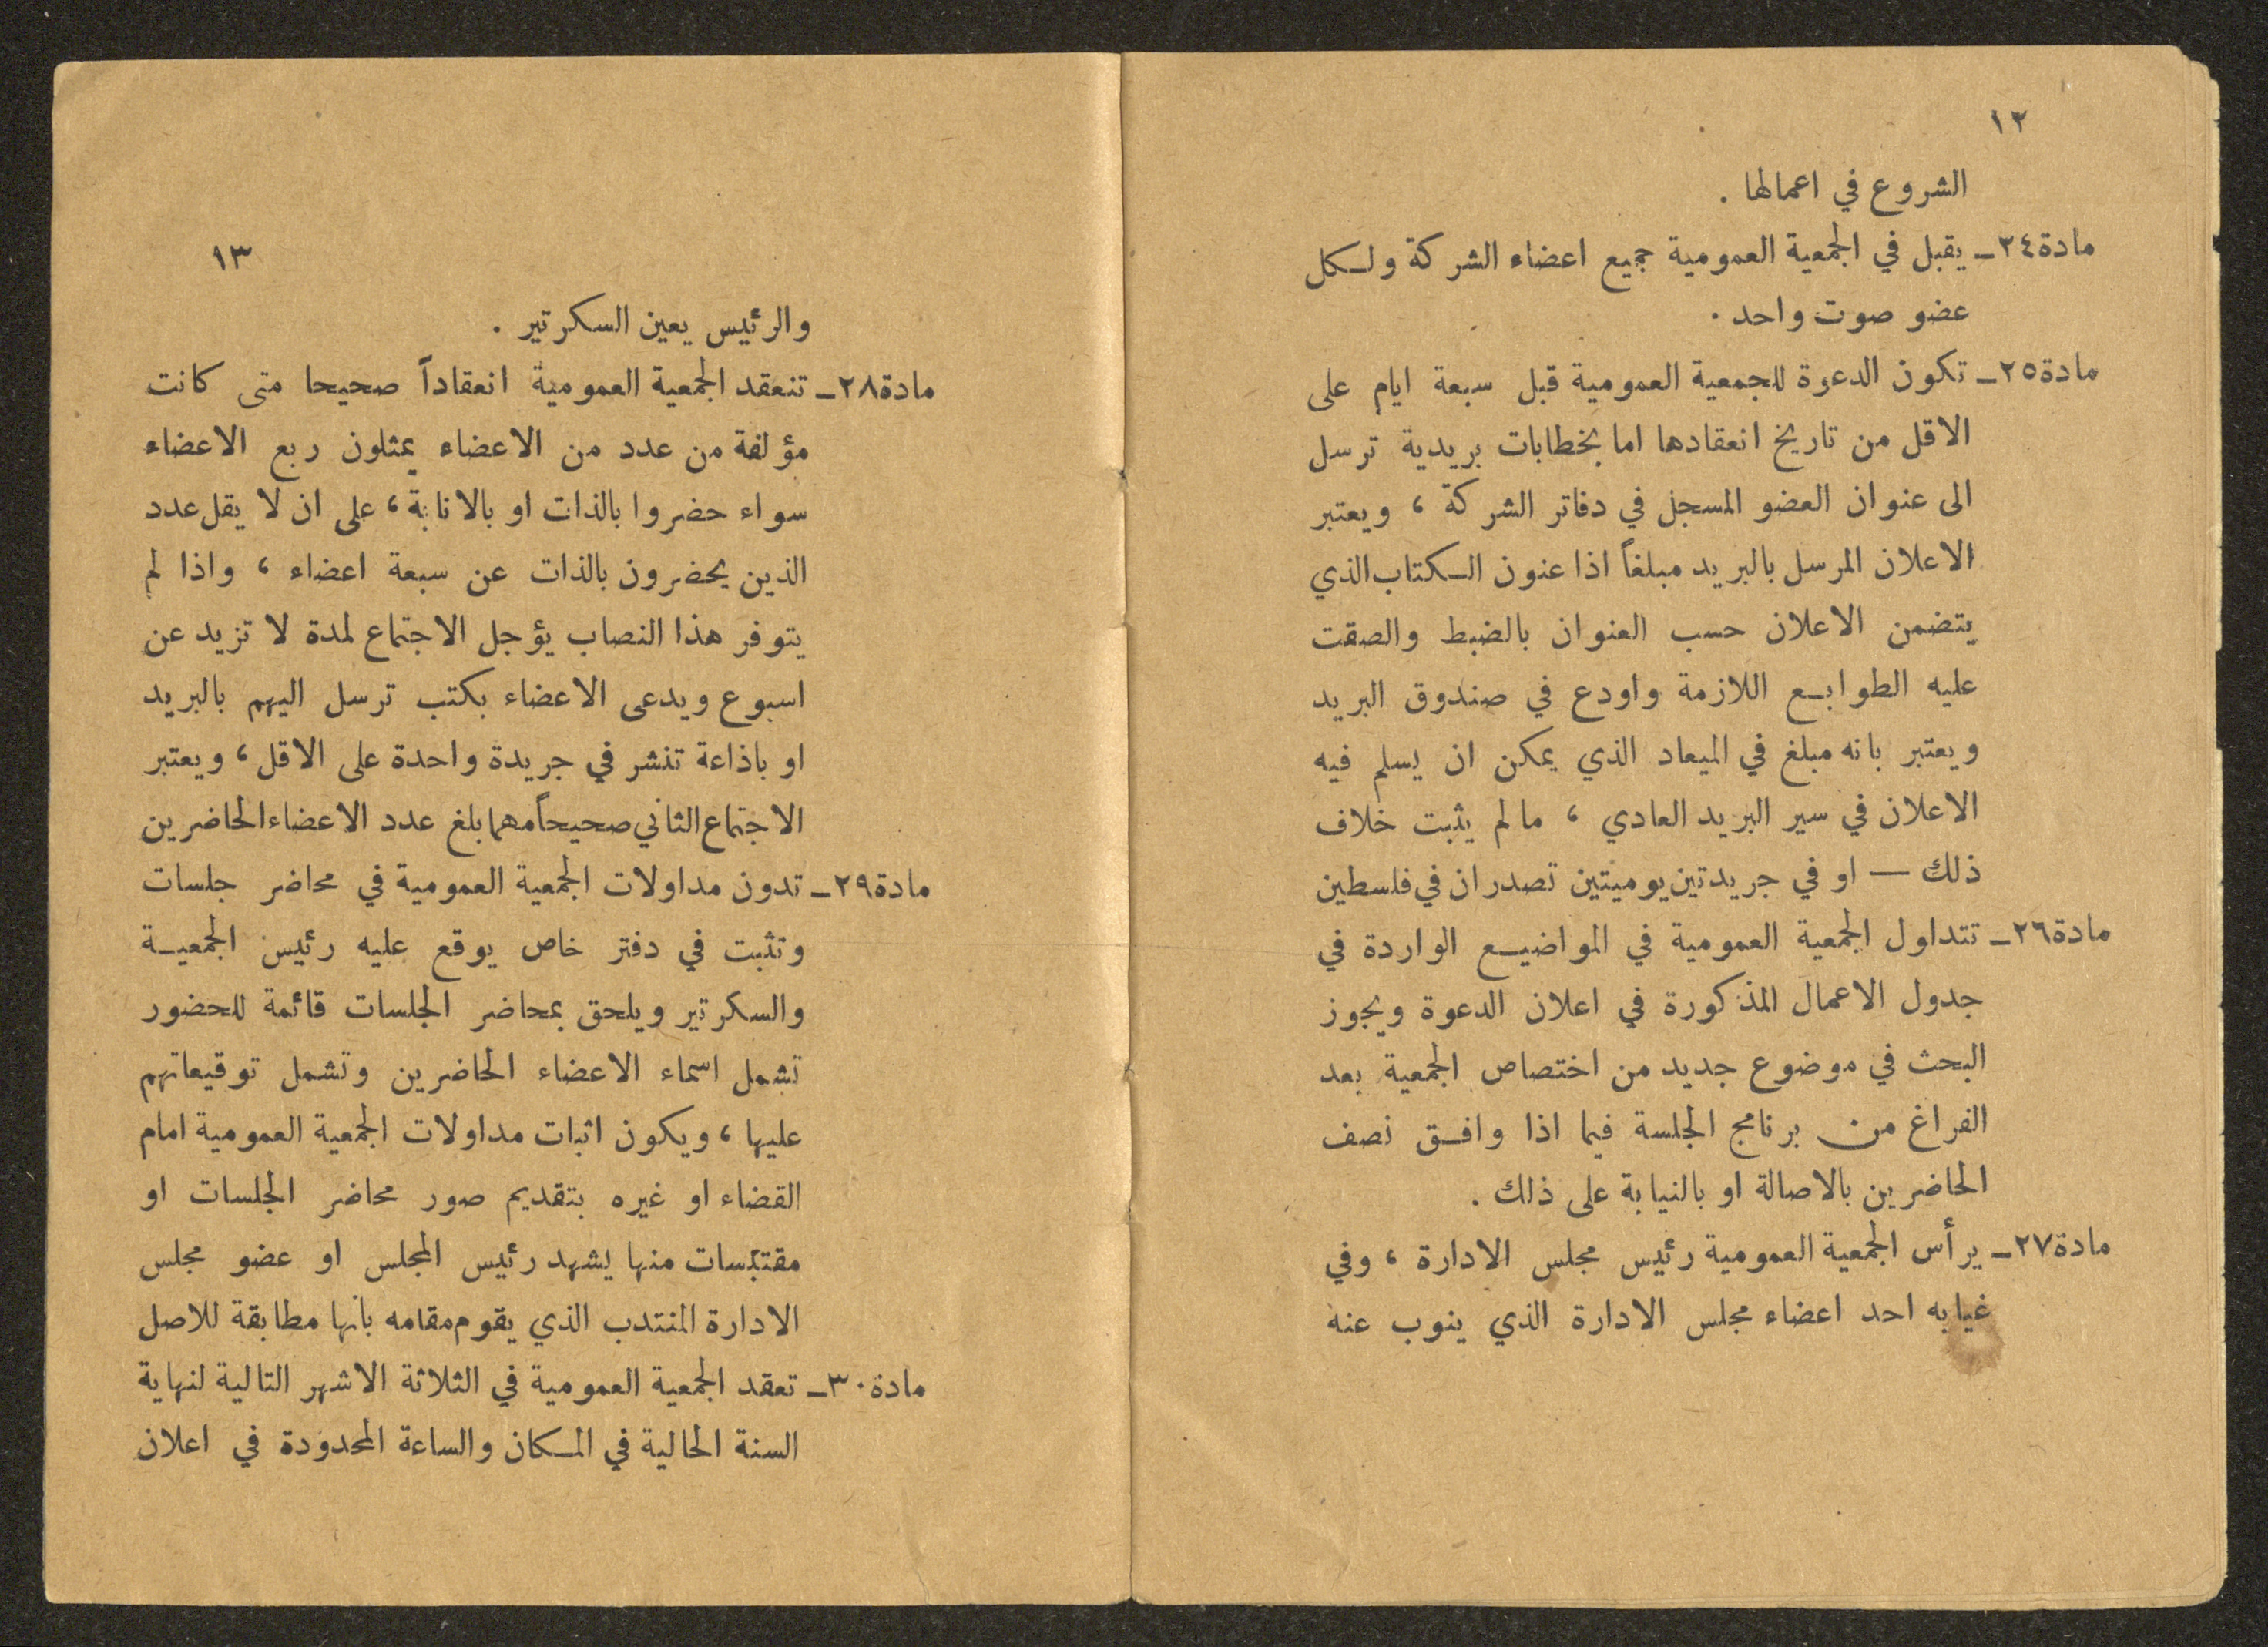 ١٢
الشروع في اعمالها .
مادة٢٤ـ يقبل في الجمعية العمومية جميع اعضاء الشركة ولكل
عضو صوت واحد .
مادة٢٥ـ تكون الدعوة للجمعية العمومية قبل سبعة ايام على
الاقل من تاريخ انعقادها اما بخطابات بريدية ترسل
الى عنوان العضو المسجل في دفاتر الشركة ، ويعتبر
الاعلان المرسل بالبريد مبلغاً اذا عنون الكتاب الذي
يتضمن الاعلان حسب العنوان بالضبط والصقت
عليه الطوابع اللازمة واودع في صندوق البريد
ويعتبر بانه مبلغ في الميعاد الذي يمكن ان يسلم فيه
الاعلان في سير البريد العادي ، مالم يثبت خلاف
ذلك — او في جريدتين يوميتين تصدران في فلسطين
مادة٢٦ـ تتداول الجمعية العمومية في المواضيع الواردة في
جدول الاعمال المذكورة في اعلان الدعوة ويجوز
البحث في موضوع جديد من اختصاص الجمعية بعد
الفراغ من برنامج الجلسة فيما اذا وافق نصف
الحاضرين بالاصالة او بالنيابة على ذلك .
مادة٢٧ـ يرأس الجمعية العمومية رئيس مجلس الادارة ، وفي
غيابه احد اعضاء مجلس الادارة الذي ينوب عنه
١٣
والرئيس يعين السكرتير .
مادة٢٨ـ تنعقد الجمعية العمومية انعقاداً صحيحا متى كانت
مؤلفة من عدد من الاعضاء يمثلون ربع الاعضاء
سواء حضروا بالذات او بالانابة ، على ان لا يقل عدد
الذين يحضرون بالذات عن سبعة اعضاء ، واذا لم
يتوفر هذا النصاب يؤجل الاجتماع لمدة لا تزيد عن
اسبوع ويدعى الاعضاء بكتب ترسل اليهم بالبريد
او باذاعة تنشر في جريدة واحدة على الاقل ، ويعتبر
الاجتماع الثاني صحيحاً مهما بلغ عدد الاعضاء الحاضرين
مادة٢٩ـ تدون مداولات الجمعية العمومية في محاضر جلسات
وتثبت في دفتر خاص يوقع عليه رئيس الجمعية
والسكرتير ويلحق بمحاضر الجلسات قائمة للحضور
تشمل اسماء الاعضاء الحاضرين وتشمل توقيعاتهم
عليها ، ويكون اثبات مداولات الجمعية العمومية امام
القضاء او غيره بتقديم صور محاضر الجلسات او
مقتبسات منها يشهد رئيس المجلس او عضو مجلس
الادارة المنتدب الذي يقوم مقامه بانها مطابقة للاصل
مادة٣٠ـ تعقد الجمعية العمومية في الثلاثة الاشهر التالية لنهاية
السنة الحالية في المكان والساعة المحدودة في اعلان